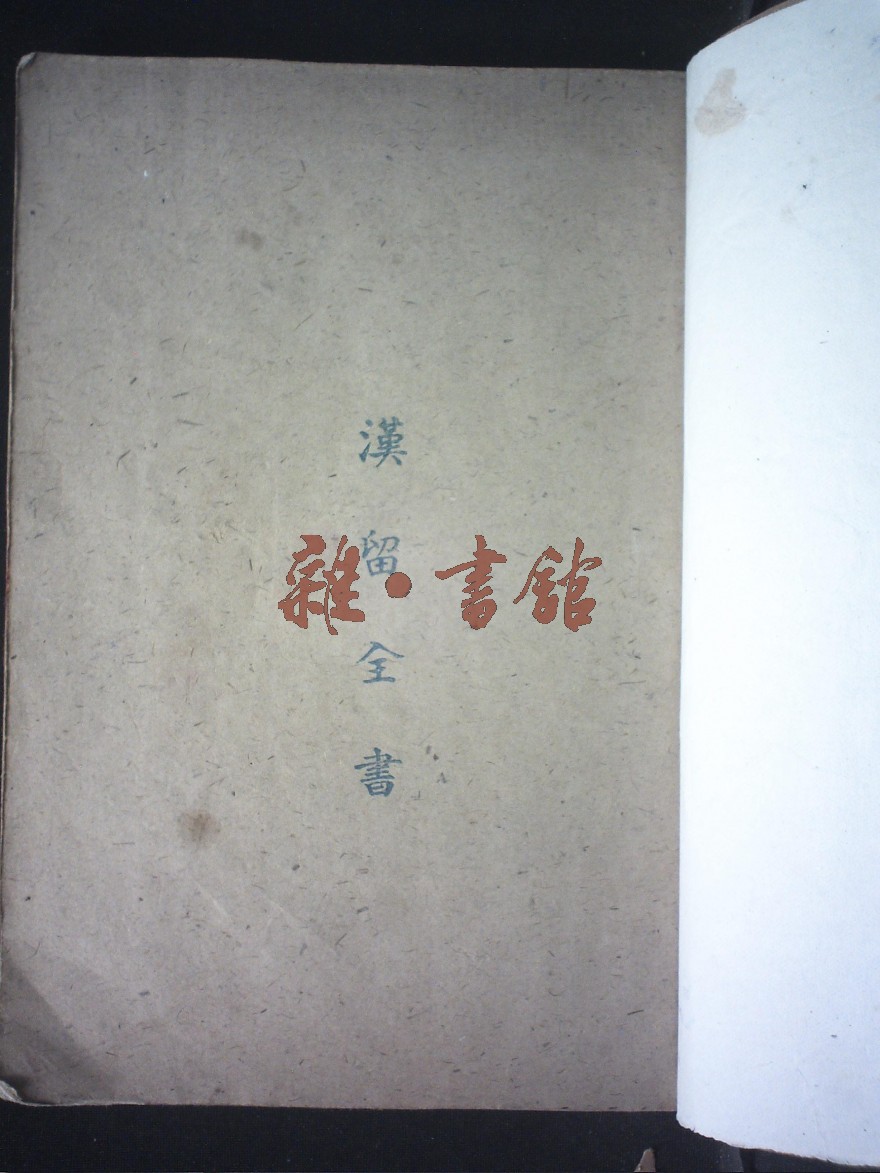 漢留全書
雜·書館